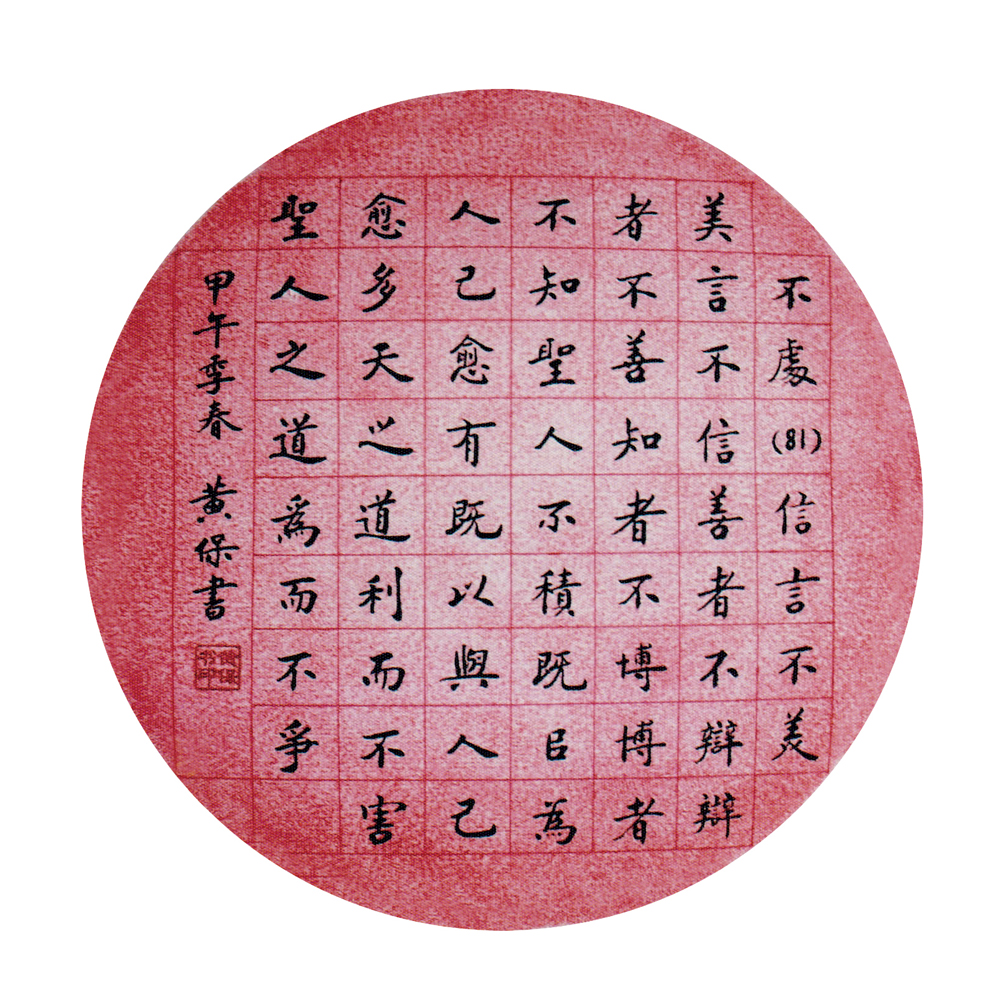 不處(81)信言不美
美言不信善者不辯辯
者不善知者不博博者
不知聖人不積既㠯為
人己愈有既以與人己
愈多天之道利而不害
聖人之道爲而不爭
甲午季春 黃保書